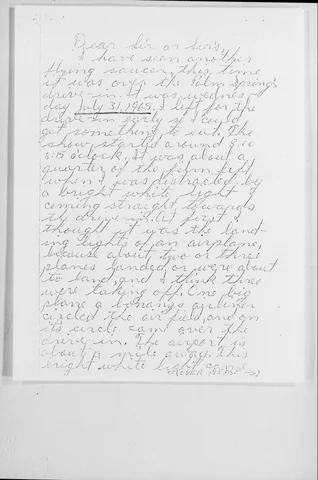 Dear Sir or Sirs,
I have seen another
flying saucer, this time
it was over the Palm Springs
drive-in. It was wednes-
day July 31, 1968. I left for the
drive-in early so I could
get something to eat. The
show started around 8:10
8:15 o'clock, it was about a
quarter of the film left
when I was distracted by
a bright white light
coming straight towards
the drive-in. At first I
thought it was the land-
ing lights of an airplane,
because about two or three
planes landed or were about
to land and I think three
were taking off. One big
plane a bonanza airliner
circled the air field and on
its circle came over the
drive-in. The airport is
about a mile away. This
bright white light
OVER